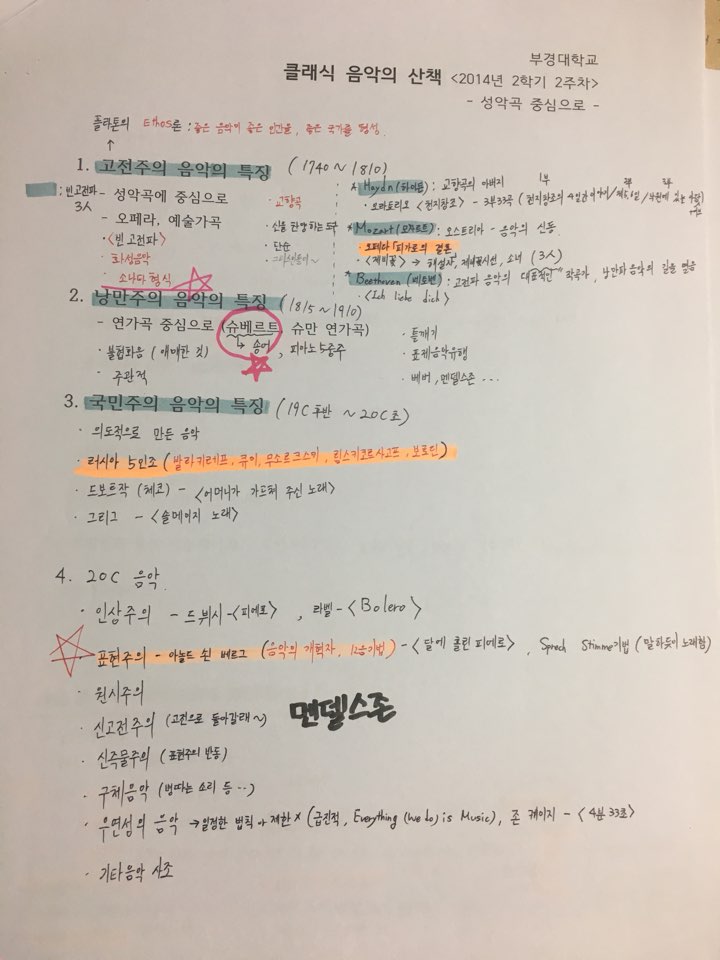 부경대학교
클래식 음악의 산책 <2014년 2학기 2주차>
- 성악곡 중심으로 -
플라톤의 Ethos론 : 좋은 음악이 좋은 인간을, 좋은 국가를 형성.
↑
1. 고전주의 음악의 특징 (1740 ~ 1810)
: 빈고전파 3人
- 성악곡에 중심으로
- 오페라, 예술가곡
· <빈 고전파>
· 화성음악
· 소나타 형식
· 교향곡
· 신을 찬양하는 도구
· 단순
* Haydn (하이든) : 교향곡의 아버지
· 오라토리오 <천지창조> - 3부 33곡 (천지창조의 4일간 이야기/제5,6일/낙원에 있는 사람)
1부
* Mozart (모차르트) : 오스트리아 - 음악의 신동
· 오페라 「피가로의 결혼」
· <제비꽃> → 해설자, 제비꽃시선, 소녀 (3人)
* Beethoven (베토벤) : 고전파 음악의 대표적인 작곡가, 낭만파 음악의 길을 열음
· <Ich liebe dich>
2. 낭만주의 음악의 특징 (1815 ~ 1910)
- 연가곡 중심으로 (슈베르트, 슈만 연가곡)
↳ 송어, 피아노 5중주
· 불협화음 (애매한 것)
· 주관적
· 틀깨기
· 표제음악유행
· 베버, 멘델스존 ...
3. 국민주의 음악의 특징 (19C 후반 ~ 20C 초)
· 의도적으로 만든 음악
· 러시아 5인조 (발라키레프, 큐이, 무소르크스키, 림스키코르사코프, 보로딘)
· 드보르작 (체코) - <어머니가 가르쳐 주신 노래>
· 그리그 - <솔베이지 노래>
4. 20C 음악.
· 인상주의 - 드뷔시 - <피에로>, 라벨 - <Bolero>
· 표현주의 - 아놀드 쉰베르그 (음악의 개혁자, 12음기법) - <달에 홀린 피에로>, Sprech Stimme기법 (말하듯이 노래함)
· 원시주의
· 신고전주의 (고전으로 돌아갈래~)
멘델스존
· 신즉물주의 (표현주의 반동)
· 구체음악 (병따는 소리 등..)
· 우연성의 음악 → 일정한 법칙 or 제한 × (급진적, Everything (we do) is Music), 존 케이지 - <4분 33초>
· 기타음악 사조